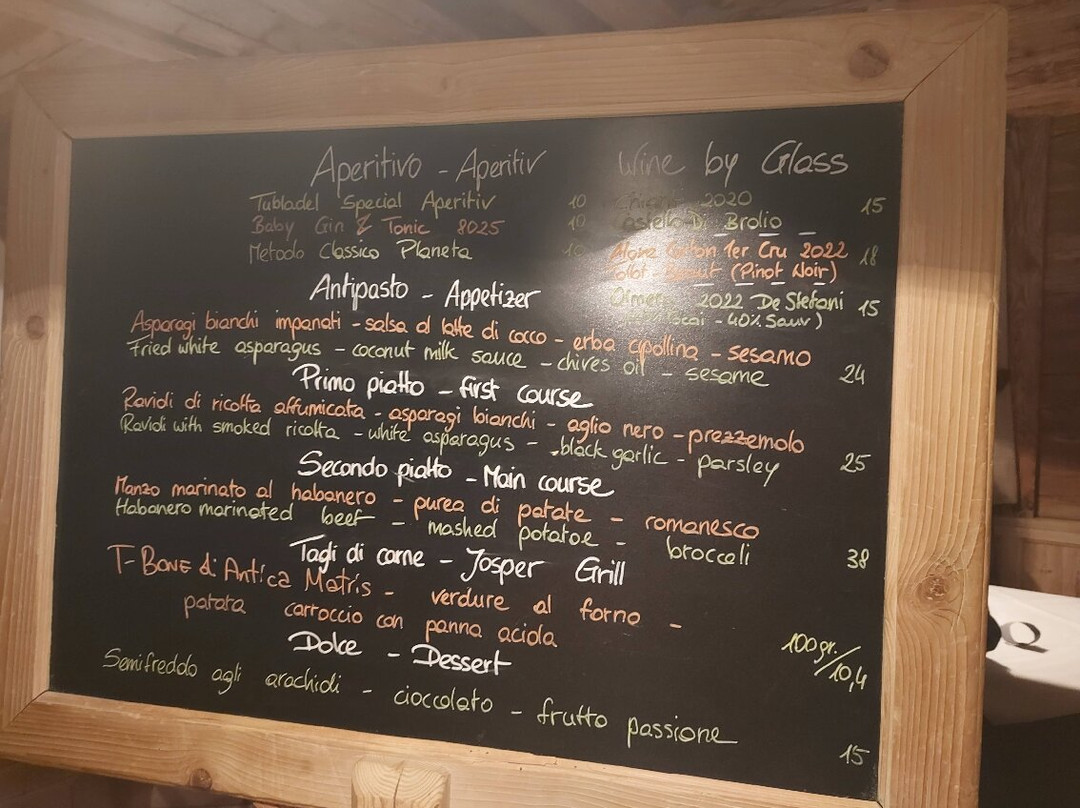 Aperitivo - Aperitiv
Tubladel Special Aperitiv 10
Baby Gin & Tonic 8025 10
Metodo Classico Planeta 10
Wine by Glass
2020 15
Castello Di Brolio
1er Cru 2022 18
(Pinot Noir)
2022 De Stefani 15
- 40% Sauv)
Antipasto - Appetizer
Asparagi bianchi impanati - salsa al latte di cocco - erba cipollina - sesamo
Fried white asparagus - coconut milk sauce - chives oil - sesame 24
Primo piatto - first course
Ravioli di ricotta affumicata - asparagi bianchi - aglio nero - prezzemolo
Ravioli with smoked ricotta - white asparagus - black garlic - parsley 25
Secondo piatto - Main course
Manzo marinato al habanero - purea di patate - romanesco
Habanero marinated beef - mashed potatoe - broccoli 38
Tagli di carne - Josper Grill
T-Bone di Antica Matris - verdure al forno -
patata cartoccio con panna acida 100gr./10,4
Dolce - Dessert
Semifreddo agli arachidi - cioccolato - frutto passione 15